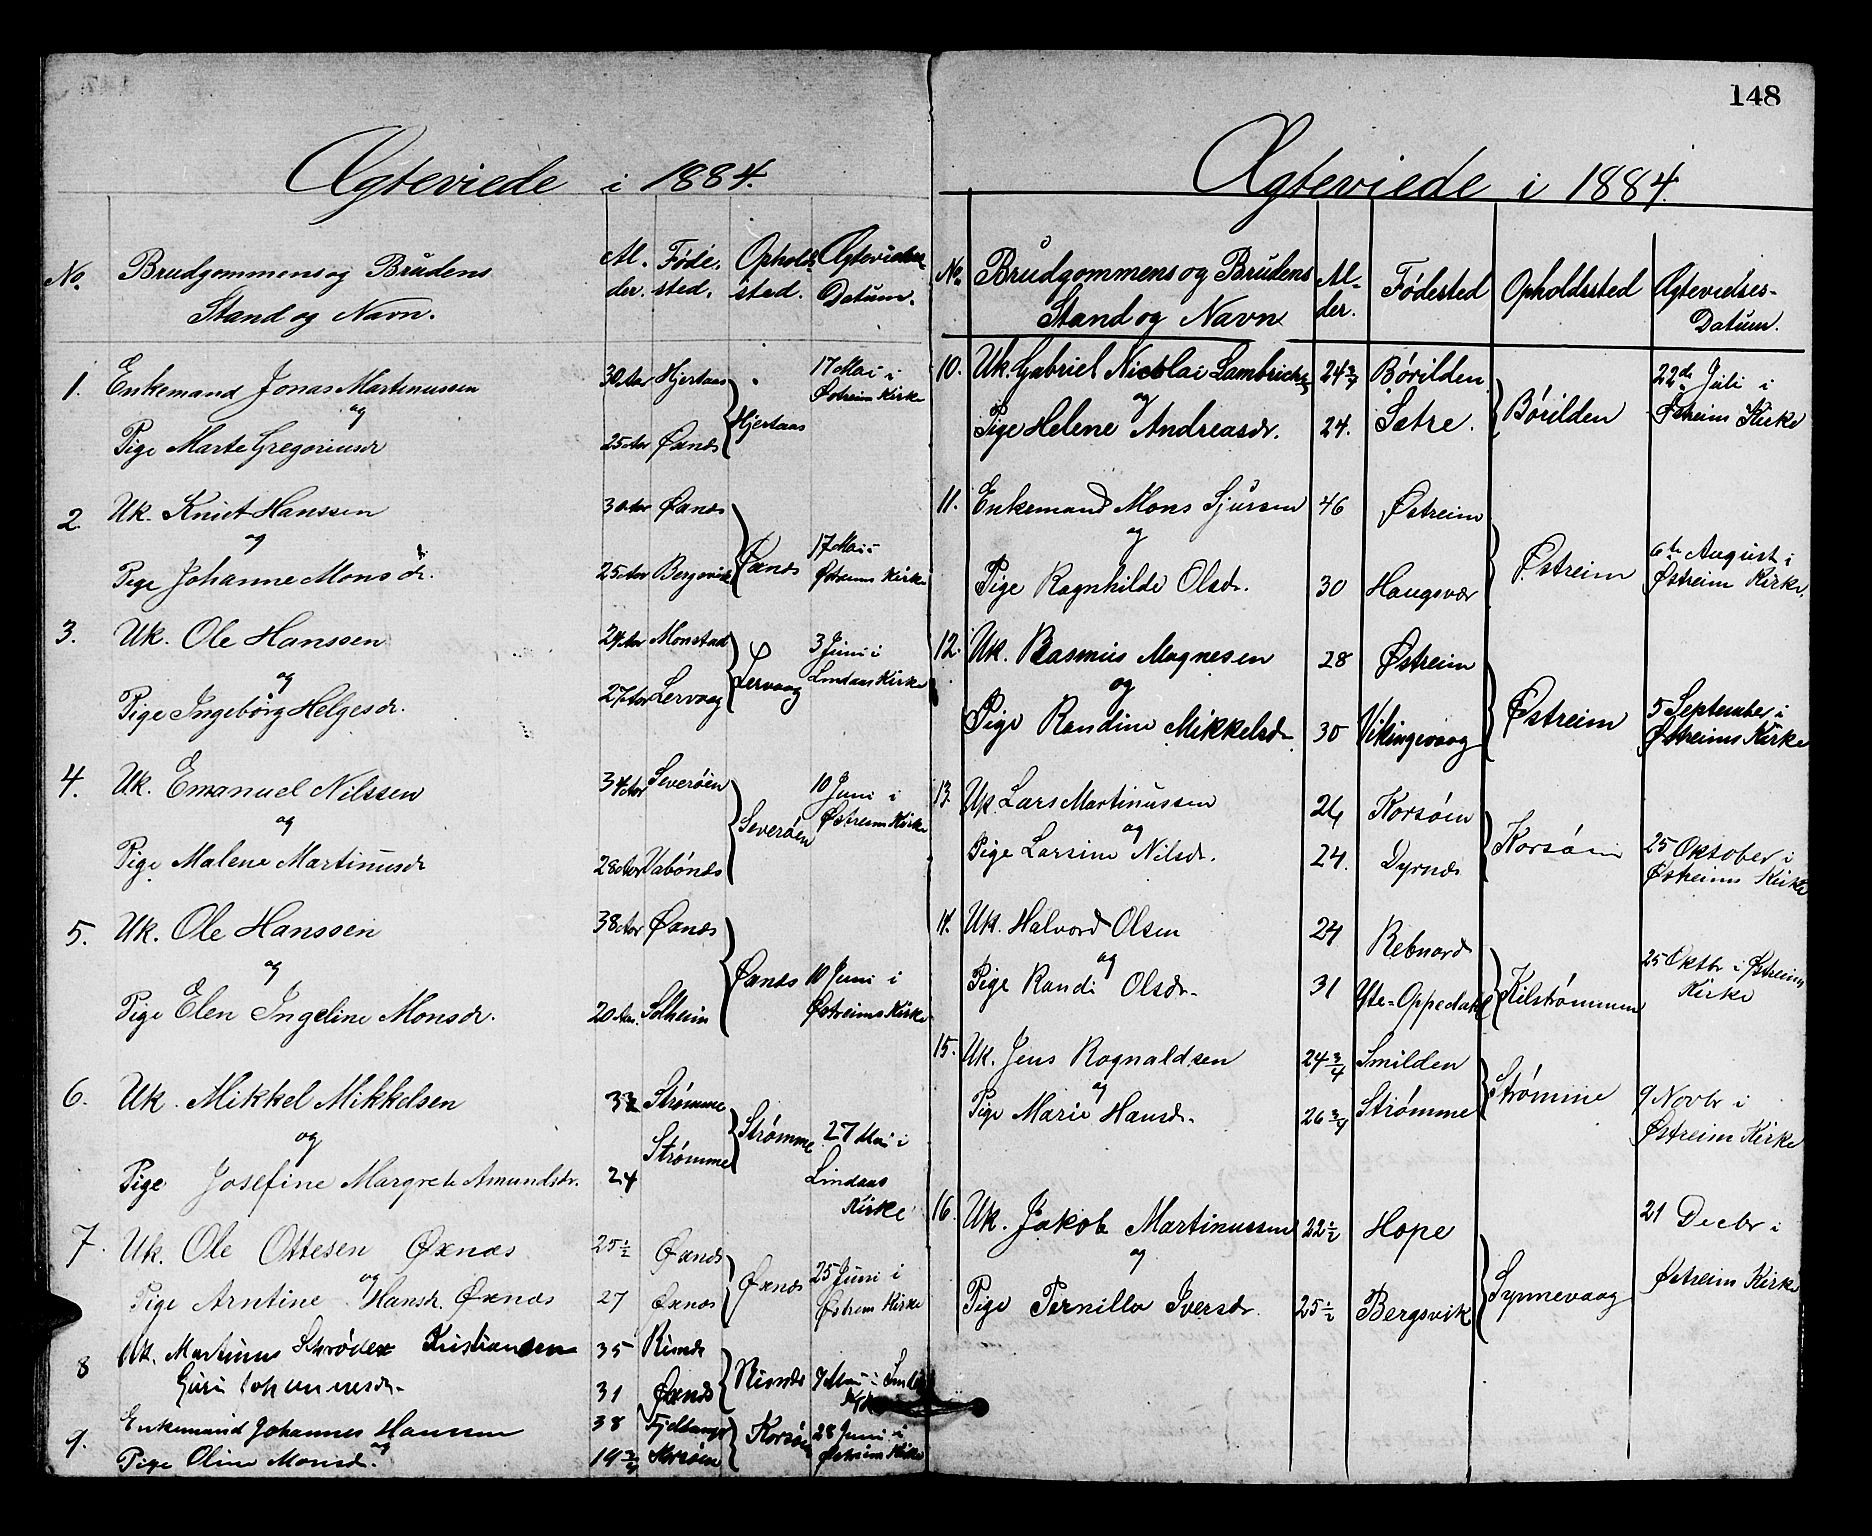 148
Ægteviede i 1884.
No. Brudgommens og Brudens Stand og Navn. Alder. Fødested. Opholdssted. Ægtevielses Datum.
1. Enkemand Jonas Martinussen 30 Aar Hjertaas 17 Mai i
og Hjertaas Østreim Kirke
Pige Marte Gregoriusdr 25 Aar Øxnæs
2. Uk. Knut Hanssen 30 Aar Øxnæs
og Øxnæs 17 Mai i
Pige Johanne Monsdr. 25 Aar Bergsvik Østreims Kirke
3. Uk. Ole Hanssen 24 Aar Monstad 3 Juni i
og Lervaag Lindaas Kirke
Pige Ingebørg Helgesdr. 27 Aar Lervaag
4. Uk. Emanuel Nilssen 34 Aar Severøen 10 Juni i
og Severøen Østreims Kirke
Pige Malene Martinusdr 28 Aar Vabønæs
5. Uk. Ole Hanssen 38 Aar Øxnæs
og Øxnæs 10 Juni i
Pige Elen Ingeline Monsdr. 20 Aar. Solheim Østreims Kirke
6. Uk. Mikkel Mikkelsen Strømme
og Strømme Strømme 27 Mai i
Pige Josefine Margrete Amundsdr. 24 Lindaas
Kirke
7. Uk. Ole Ottesen Øxnæs 25½ Øxnæs 25 Juni i
og Øxnæs
Pige Arntine Hansdr. Øxnæs 27 Øxnæs Østreim Kirke
8 Uk. Martinus Schrøder Kristiansen 35 Risnæs
Risnæs 7 Mai i
Guri Johannesdr. 31 Øxnæs
9. Enkemand Johannes Hanssen 38 28 Juni i
og Korsøen
Pige Oline Monsdr. 19¾ Korsøen Østreim Kirke
Ægteviede i 1884.
No. Brudgommens og Brudens Stand og Navn Alder. Fødested Opholdssted Ægtevielses-Datum.
10. Uk. Gabriel Nicolai Lambrichs 24¾ Børilden 22de Juli i
og Børilden Østreim Kirke
Pige Helene Andreasdr. 24. Sætre.
11. Enkemand Mons Sjursen 46 Østreim
og Østreim 6te August i
Pige Ragnhilde Olsdr. 30 Haugsvær Østreim Kirke.
12. Uk. Rasmus Magnesen 28 Østreim
og Østreim 5 September i
Pige Randine Mikkelsdr. 30 Vikingevaag Østreims Kirke
13. Uk. Lars Martinussen 26 Korsøen
og Korsøen 25 Oktober i
Pige Larsine Nilsdr. 24. Dyrnæs Østreims Kirke
14. Uk. Halvord Olsen 24 Rebnord
og Kilstrømmen 25 Oktbr i Østreims
Pige Randi Olsdr. 31 Yte-Oppedahl Kirke
15. Uk. Jens Rognaldsen 24¾ Smilden
og Strømme 9 Novbr i
Pige Marie Hansdr. 26¾ Strømme Østreim Kirke
16. Uk. Jakob Martinussen 22½ Hope 21 Decbr i
og Synnevaag
Pige Pernille Iversdr. 25½ Bergsvik Østreim Kirke